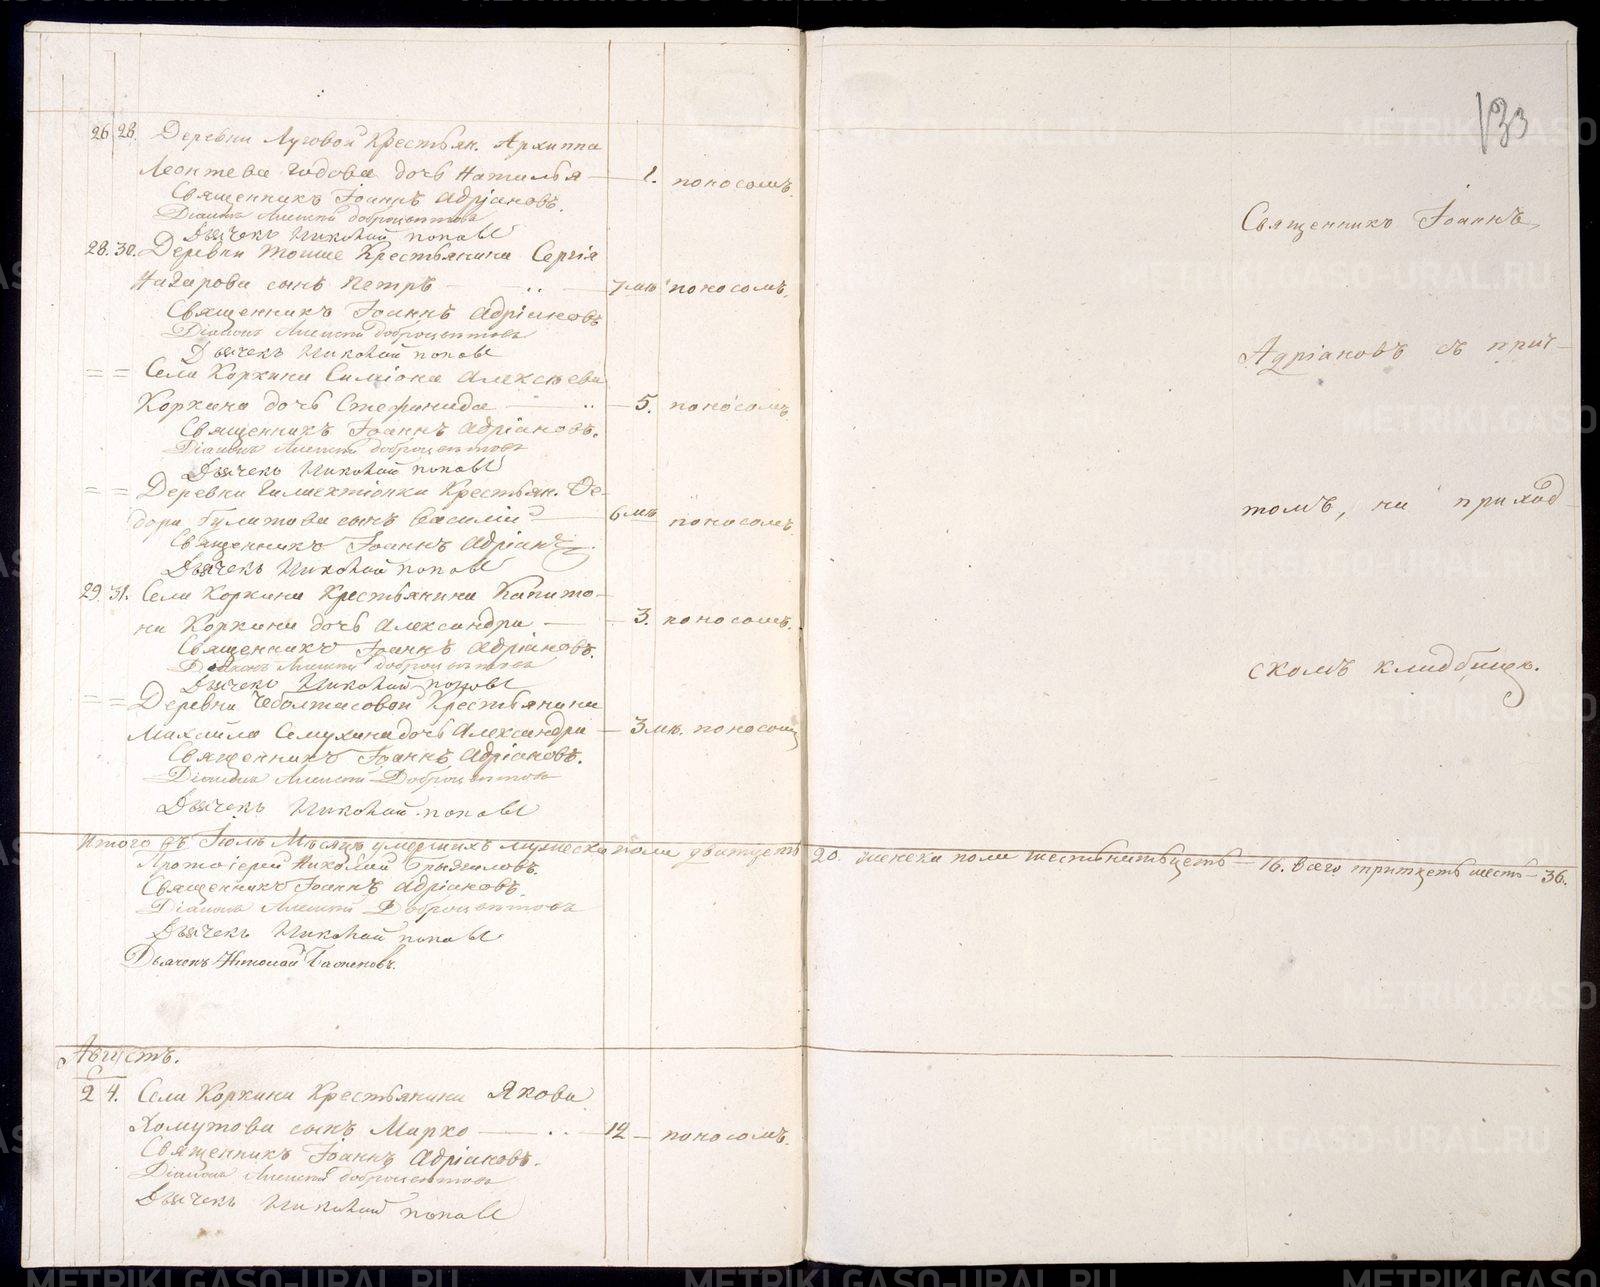 133
26. 28. Деревни Луговой Крестьян. Архиппа
Леонтева Чадова дочь Наталья — 1. поносомъ.
Священникъ Іоаннъ Адріановъ.
Діаконъ Алексей Доброцветтовъ
Дьячекъ Николай поповъ
28. 30. Деревни тоише Крестьянина Сергія
Назарова сынъ Петръ — 7 мѣ. поносомъ.
Священникъ Іоаннъ Адріановъ
Діаконъ Алексей Доброцветтовъ
Дьячекъ Николай поповъ
= = Села Коркина Симіона Алексѣева
Коркина дочь Стефанида — 5. поносомъ
Священникъ Іоаннъ Адріановъ.
Діаконъ Алексей Доброцветтовъ
Дьячекъ Николай поповъ
= = Деревни Крестьян. Ѳе-
дора Булатова сынъ Василій — 6 мѣ. поносомъ
Священникъ Іоаннъ Адріан
Дьячекъ Николай поповъ
29. 31. Села Коркина Крестьянина Капито-
на Коркина дочь Александра — 3. поносомъ.
Священникъ Іоаннъ Адріановъ.
Діаконъ Алексей Доброцветтовъ
Дьячекъ Николай поповъ
= = Деревни Чеболтасовой Крестьянина
Михайла Семухина дочь Александра — 3 мѣ. поносомъ
Священникъ Іоаннъ Адріановъ.
Діаконъ Алексей Доброцветтовъ
Дьячекъ Николай поповъ
Итого въ Іюлѣ Мѣсяцѣ умершихъ мужеска пола дватцеть 20. женска пола шестьнатьцеть — 16. Всего тритцеть шесть — 36.
Протоіерей Николай
Священникъ Іоаннъ Адріановъ.
Діаконъ Алексей Доброцветтовъ
Дьячекъ Николай поповъ
Дьячекъ Николай
Августъ.
2 4. Села Коркина Крестьянина Якова
Хомутова сынъ Марко — 12 — поносомъ.
Священникъ Іоаннъ Адріановъ.
Діаконъ Алексей Доброцветтовъ
Дьячекъ Николай поповъ
Священникъ Іоаннъ
Адріановъ съ прич-
томъ, на приход-
скомъ кладбище.
METRIKI.GASO-URAL.RU